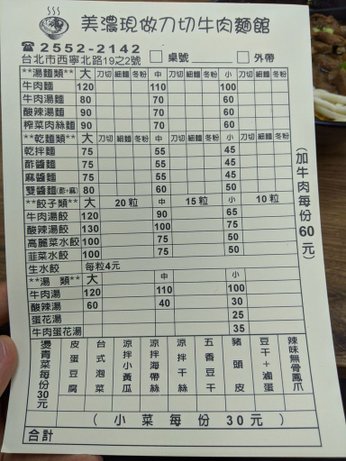 美濃現做刀切牛肉麵館
☎2552-2142 □ 桌號 □ 外帶
台北市西寧北路19之2號
**湯麵類** 大 刀切 細麵 冬粉 中 刀切 細麵 冬粉 小 刀切 細麵 冬粉
牛肉麵 120 110 100
牛肉湯麵 80 70 60
酸辣湯麵 90 70 60
榨菜肉絲麵 90 70 60
**乾麵類** 大 刀切 細麵 冬粉 中 刀切 細麵 冬粉 小 刀切 細麵 冬粉
乾拌麵 75 55 45
酢醬麵 75 55 45
麻醬麵 75 55 45
雙醬麵(酢+麻) 80 60 50
**餃子類** 大 20粒 中 15粒 小 10粒
牛肉湯餃 120 90 65
酸辣湯餃 130 100 75
高麗菜水餃 100 75 50
韮菜水餃 100 75 50
生水餃 每粒4元
**湯 類** 大 中 小
牛肉湯 120 110 100
酸辣湯 60 40 30
蛋花湯 25
牛肉蛋花湯 35
(加牛肉每份60元)
燙青菜每份30元
皮蛋豆腐
台式泡菜
涼拌小黃瓜
涼拌海帶絲
涼拌干絲
五香豆干
豬頭皮
豆干+滷蛋
辣味無骨鳳爪
(小菜每份30元)
合計